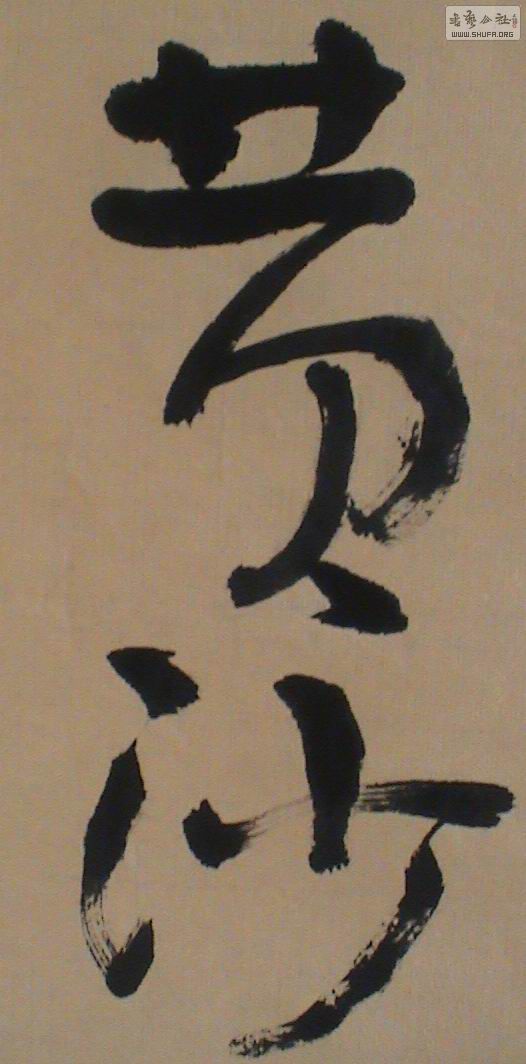 書艺公社
WWW.SHUFA.ORG
黄沙